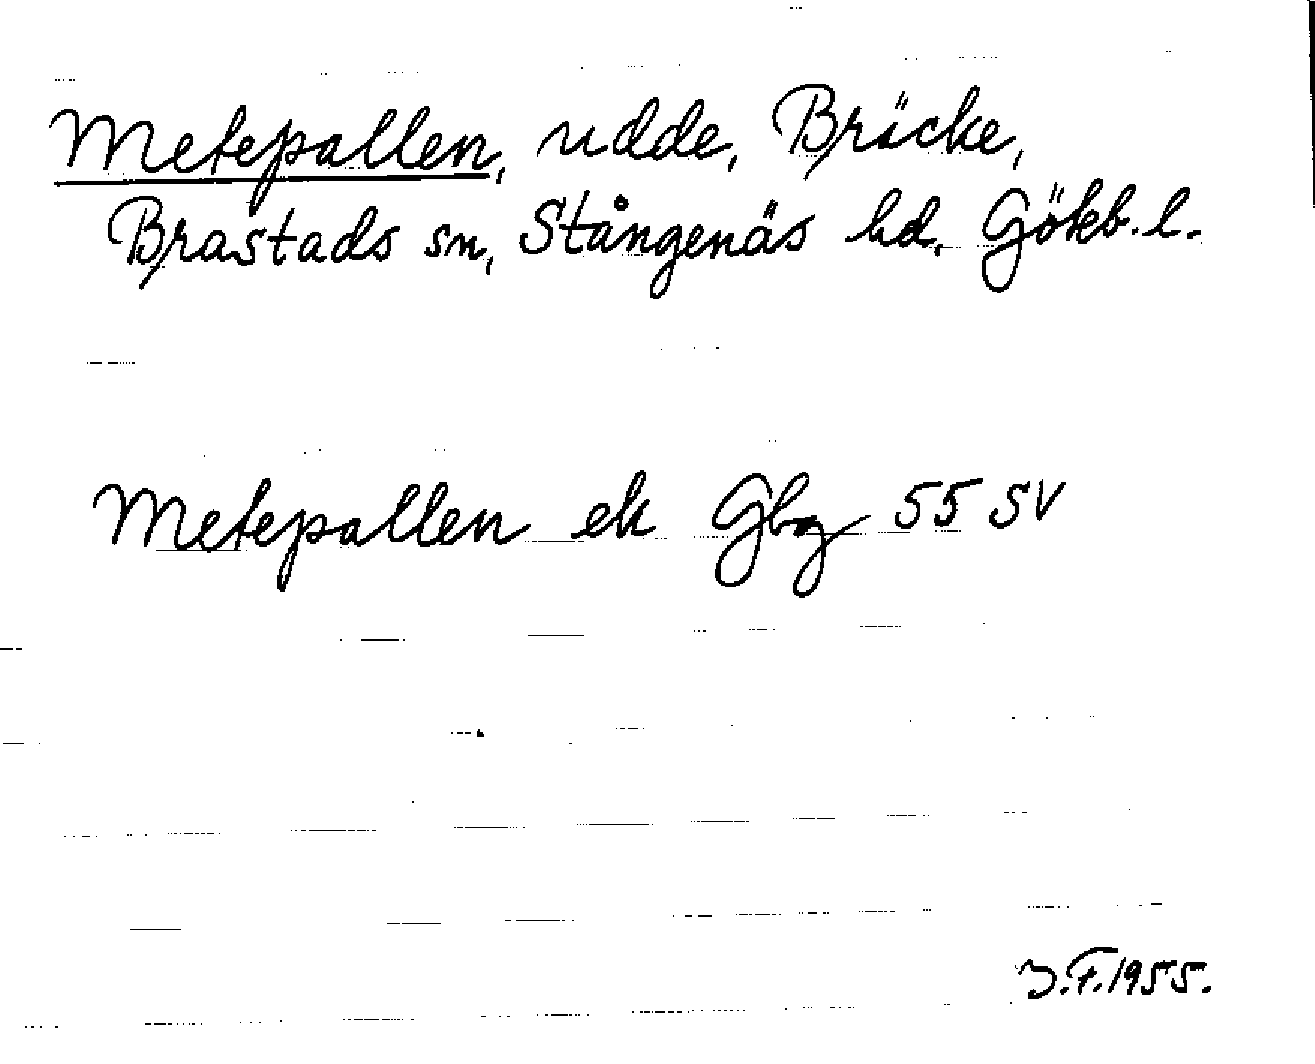 Metepallen, udde, Bräcke,
Brastads sn, Stångenäs hd. Gökb. l.
Metepallen ek Gbg 55 SV
J.F. 1955.